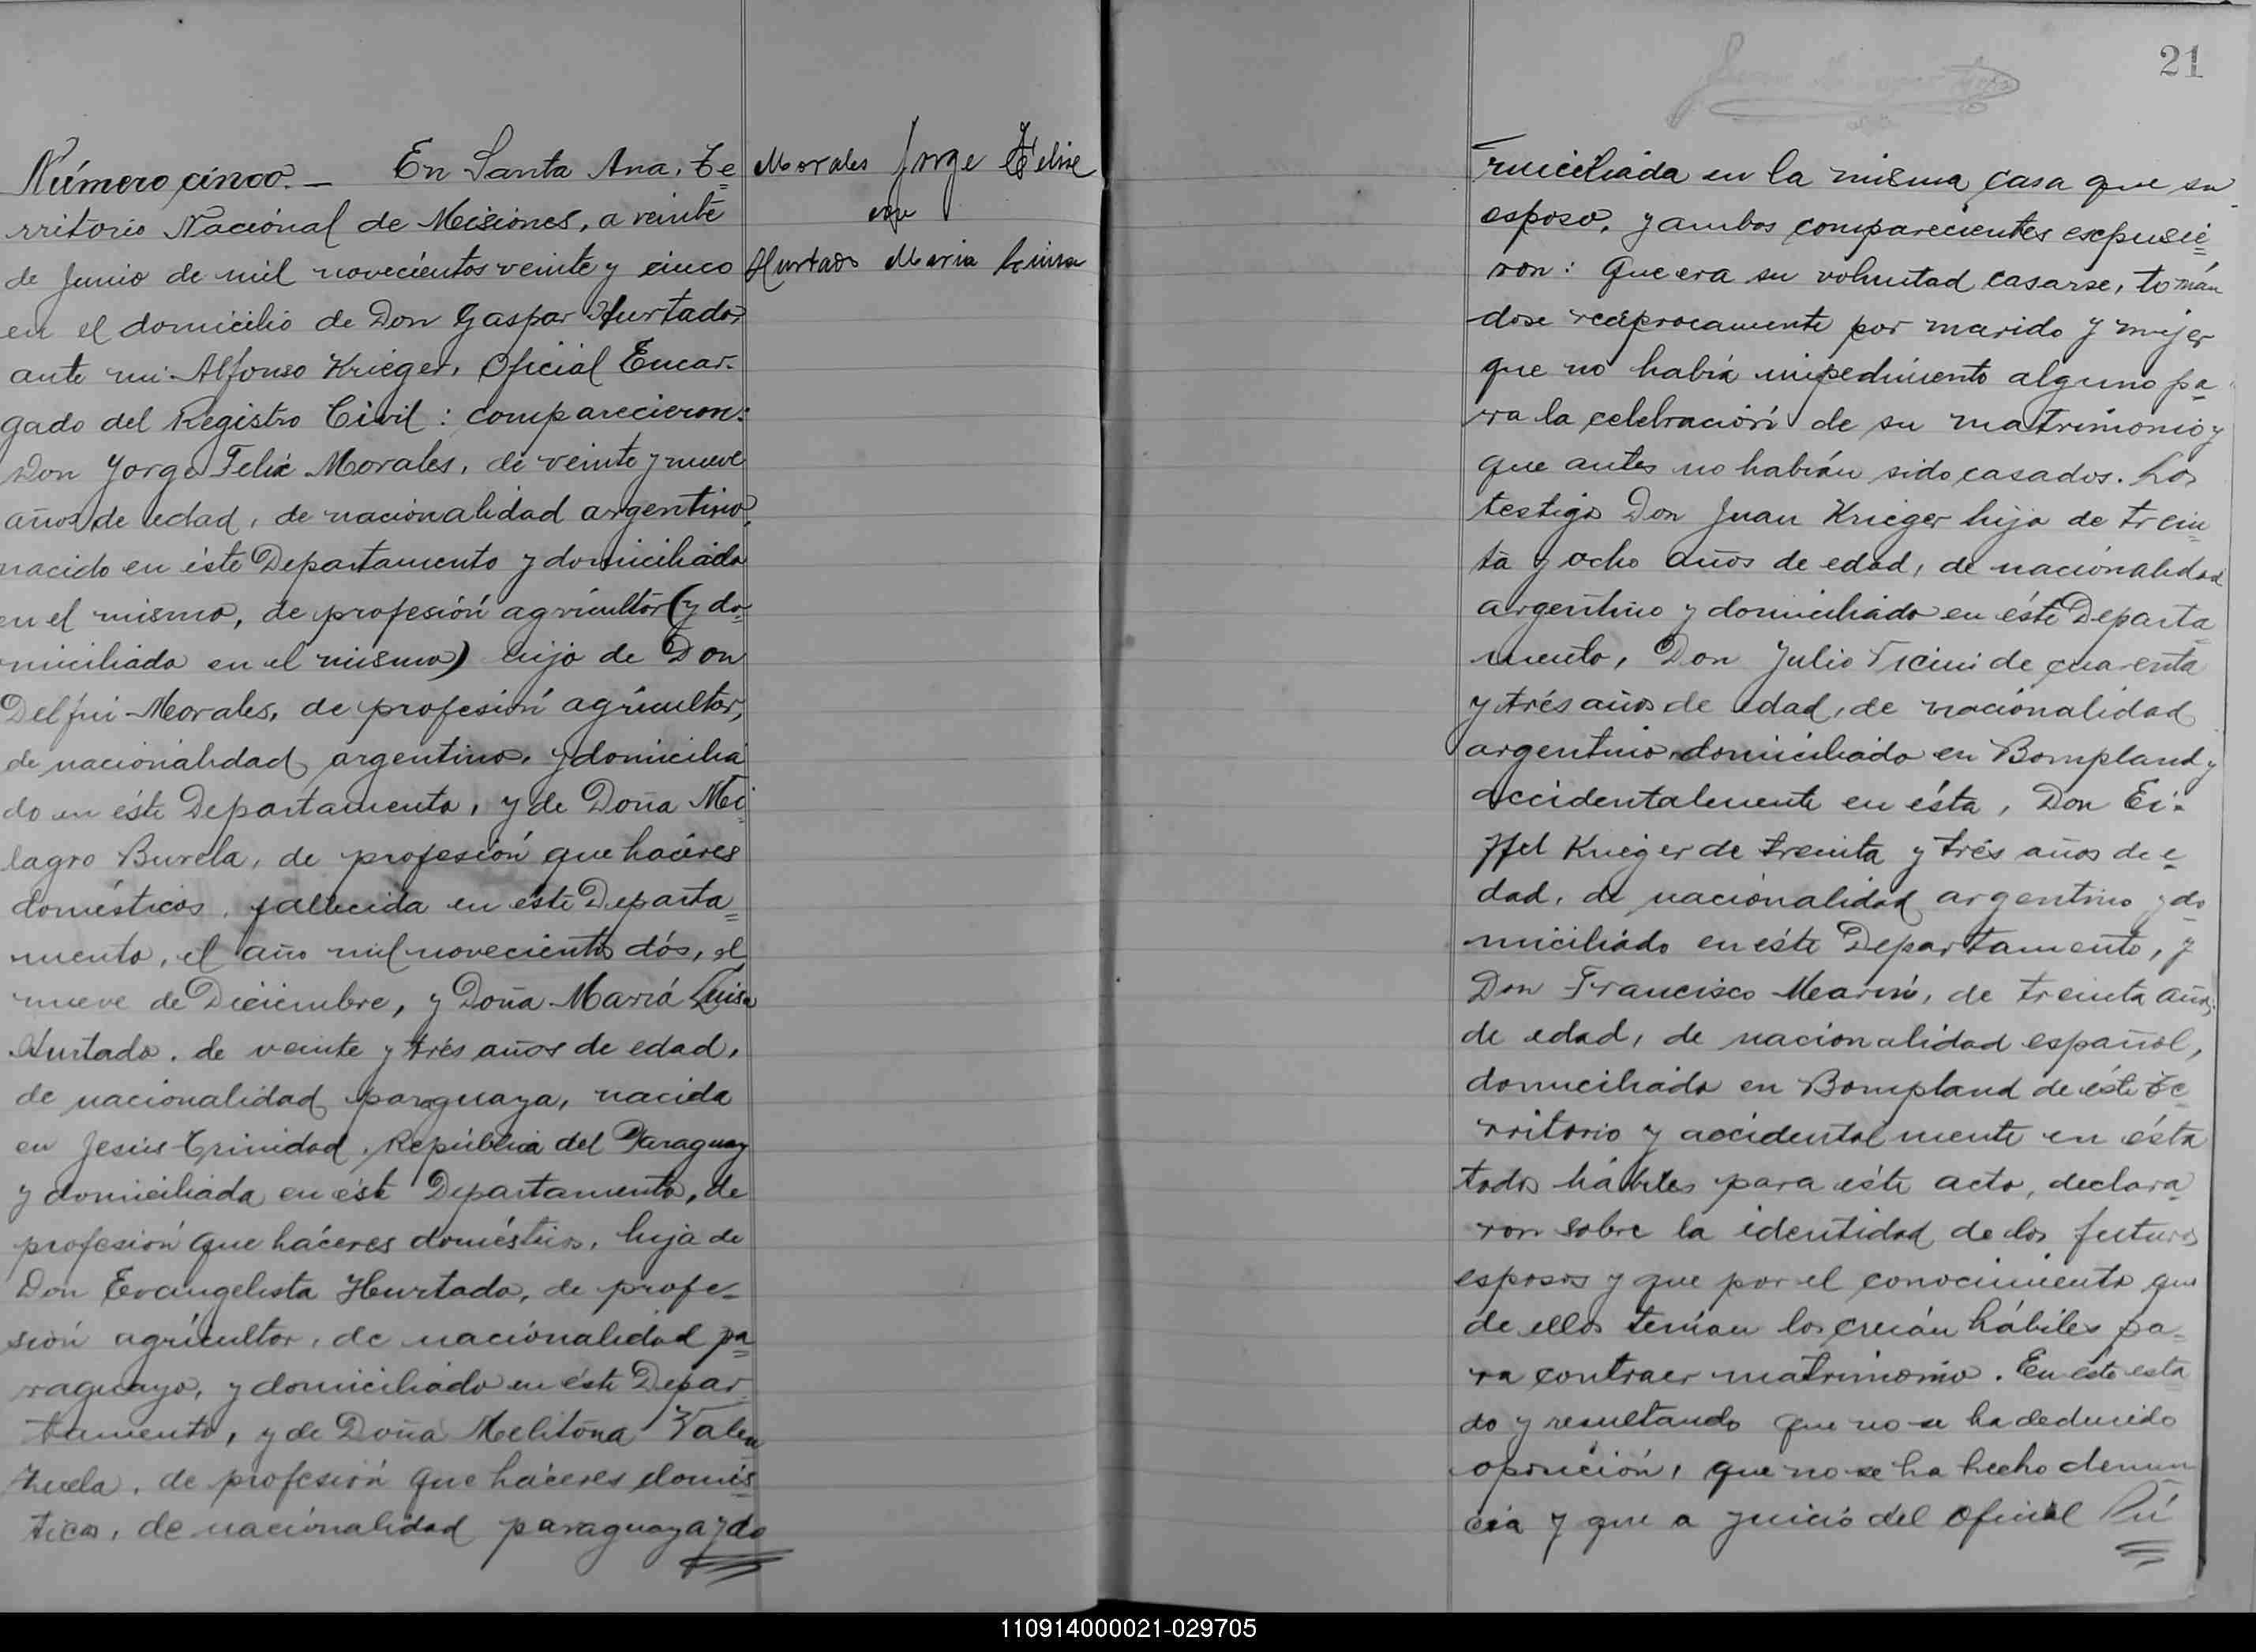 Número cinco. — En Santa Ana, Te=
rritorio Nacional de Misiones, a veinte
de Junio de mil novecientos veinte y cinco
en el domicilio de Don Gaspar Hurtado,
ante mi Alfonso Krieger, Oficial Encar-
gado del Registro Civil: comparecieron:
Don Jorge Felix Morales, de veinte y nueve
años de edad, de nacionalidad argentino,
nacido en éste Departamento y domiciliado
en el mismo, de profesión agricultor (y do-
miciliado en el mismo) hijo de Don
Delfin Morales, de profesión agricultor,
de nacionalidad argentino, y domicilia
do en éste Departamento, y de Doña Mi=
lagro Burela, de profesión que hacéres
domésticos, fallecida en éste Departa=
mento, el año mil novecientos dós, el
nueve de Diciembre, y Doña María Luisa
Hurtado, de veinte y trés años de edad,
de nacionalidad paraguaya, nacida
en Jesús Trinidad, República del Paraguay
y domiciliada en éste Departamento, de
profesión que háceres domésticos, hija de
Don Evangelista Hurtado, de profe=
sión agricultor, de nacionalidad pa=
raguayo, y domiciliado en éste Depar
tamento, y de Doña Melitona Valen
zuela, de profesión que háceres domés=
ticos, de nacionalidad paraguaya y do
Morales Jorge Felix
con
Hurtado Maria Luisa
21
miciliada en la misma casa que su
esposo, y ambos comparecientes expusie=
ron: Que era su voluntad casarse, tomán
dose recíprocamente por marido y mujer
que no había impedimento alguno pa=
ra la celebración de su matrimonio y
que antes no habían sido casados. Los
testigos Don Juan Krieger hijo de trein
ta y ocho años de edad, de nacionalidad
argentino y domiciliado en éste Departa=
mento, Don Julio de cuarenta
y trés años de edad, de nacionalidad
argentino, domiciliado en Bompland y
accidentalmente en ésta, Don Ei=
ffel Krieger de treinta y trés años de e=
dad, de nacionalidad argentino y do
miciliado en éste Departamento, y
Don Francisco Marin, de treinta años
de edad, de nacionalidad español,
domiciliado en Bompland de éste Te=
rritorio y accidentalmente en ésta
todos hábiles para éste acto, declara=
ron sobre la identidad de los futuros
esposos y que por el conocimiento que
de ellos tenían los creían hábiles pa=
ra contraer matrimonio. En éste esta
do y resultando que no se ha deducido
oposición, que no se ha hecho denun
cia y que a juicio del Oficial Pú
110914000021-029705